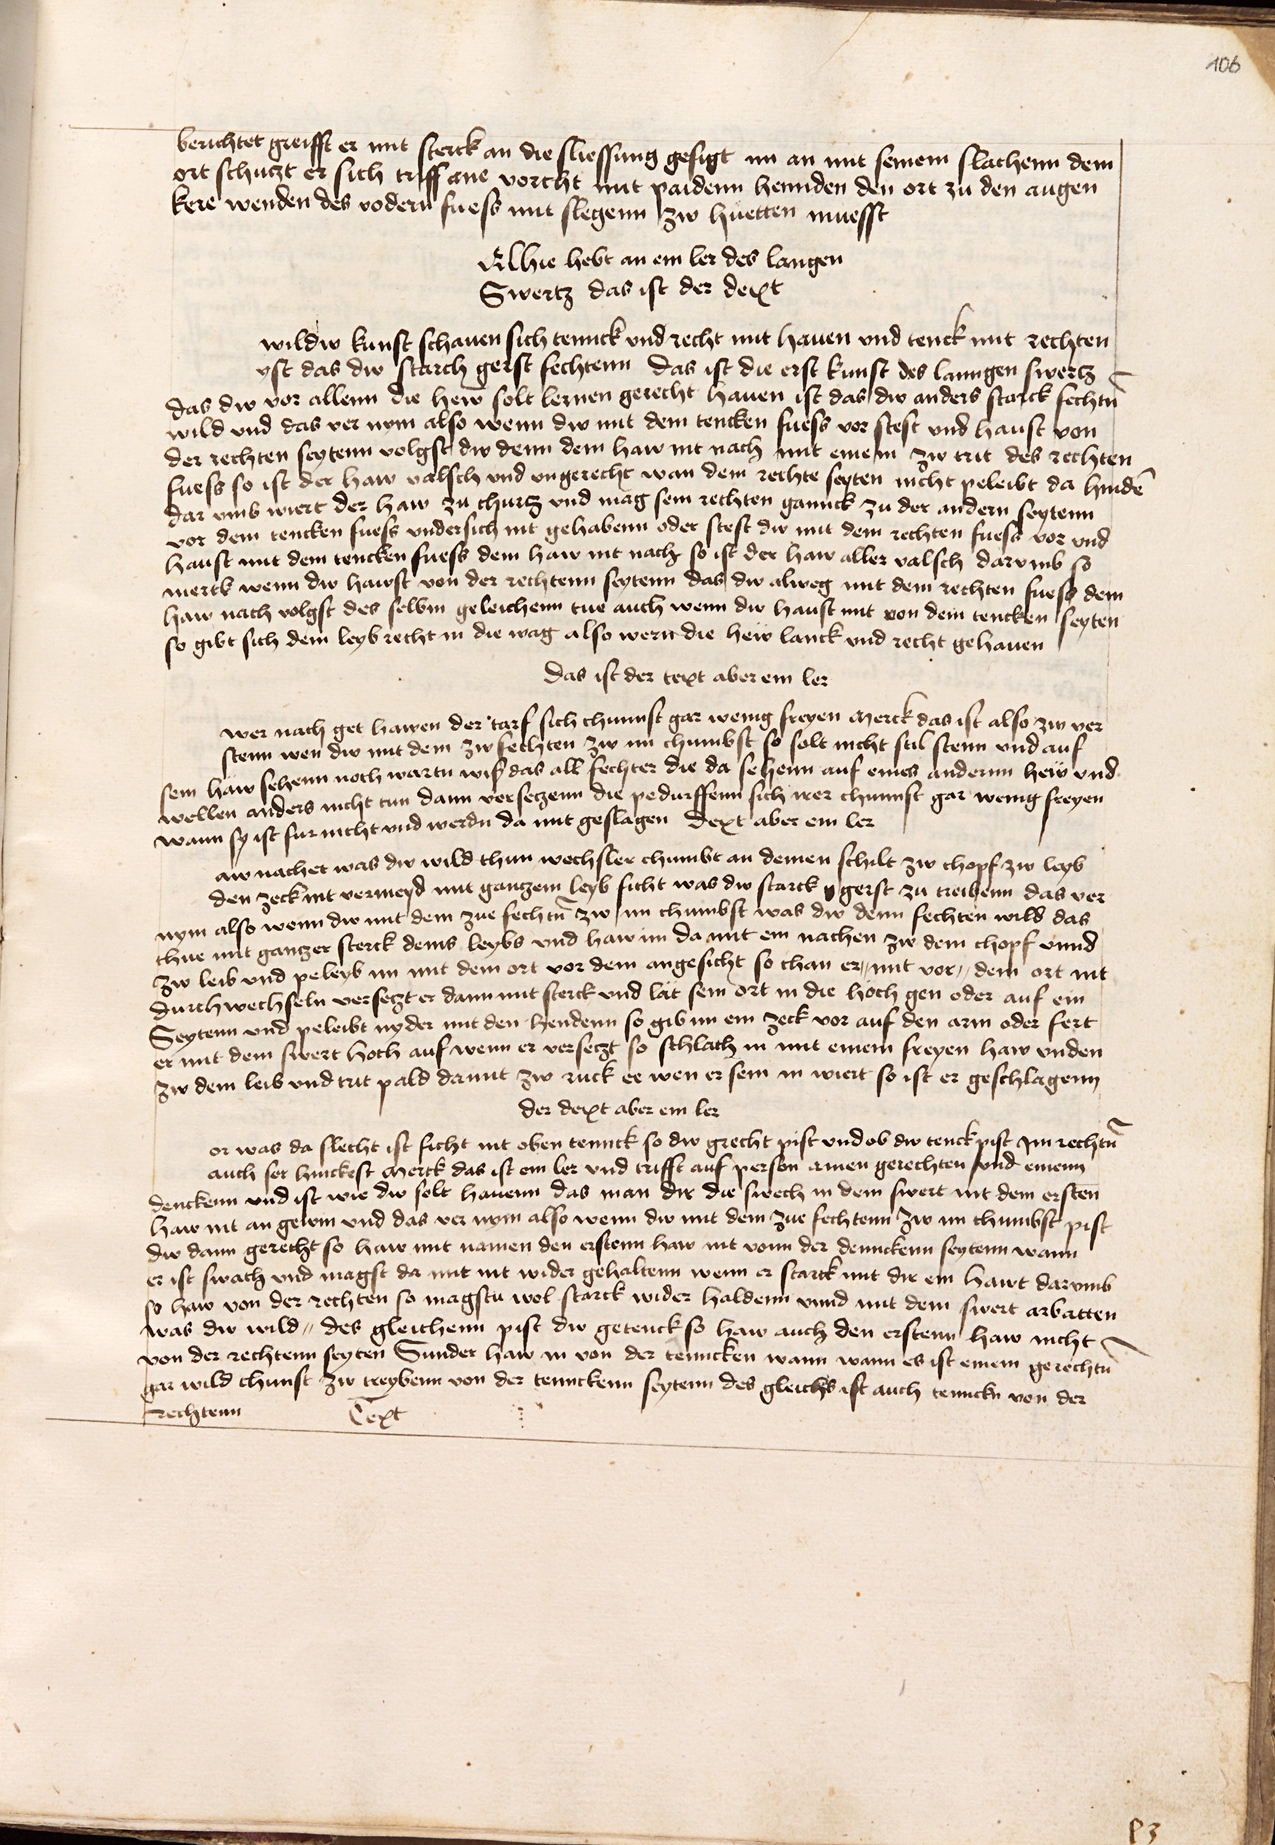 106
berichtet greifft er mit sterck an die sliessung gesigt im an mit seinem slachenn dem
ort schutzt er sich triff ane vorcht mit paidenn hennden den ort zu den augen
kere wenden des vodern fuess mit slegenn zw huetten muesst
Alhie hebt an ein ler des langen
Swertz das ist der dext
wildw kunst schauen sich tennck vnd recht mit hauen vnd tenck mit rechten
yst das dw starch gerst fechtenn Das ist die erst kunst des lanngen swertz
das dw vor allenn die hew solt lernen gerecht hauen ist das dw anders starck fechtn̄
wild vnd das ver nym also wenn dw mit dem tencken fuess vor stest vnd haust von
der rechten seytenn volgst dw denn dem haw nit nach mit einem zw trit des rechten
fuess so ist der haw valsch vnd vngerecht wan dein rechte seyten nicht peleibt da hindē
dar vmb wiert der haw zu churtz vnd mag sein rechten gannck zu der andern seytenn
vor dem tencken fuess vndersich nit gehabenn oder stest dw mit dem rechten fuess vor vnd
haust mit dem tencken fuess dem haw nit nach so ist der haw aller valsch darvmb so
merck wenn dw hawst von der rechtenn seytenn das dw alweg mit dem rechten fuess dem
haw nach volgst des selbm geleichenn tue auch wenn dw haust mit von dein tencken seyten
so gibt sich dein leyb recht in die wag also wern die hew lanck vnd recht gehauen
Das ist der text aber ein ler
wer nach get hawen der tarf sich chunnst gar wenig freyen Merck das ist also zw ver
stenn wen dw mit dem zw fechten zw im chumbst so solt nicht stil stenn vnd auf
sein haw sehenn noch wartn wis das all fechter die da sehenn auf eines andernn hew vnd
wellen anders nicht tun dann versetzenn die pedurffenn sich irer chunnst gar wenig freyen
wann sy ist fur nicht vnd werdn da mit geslagen Dext aber ein ler
aw nachet was dw wild thun wechsler chumbt an deinen schilt zw chopf zw leyb
den zeck nit vermeyd mit gantzem leyb ficht was dw starck gerst zu treibenn das ver
nym also wenn dw mit dem zue fechtn̄ zw im chumbst was dw denn fechten wild das
thue mit gantzer sterck deins leybs vnd haw im da mit ein nachen zw dem chopf vnnd
zw leib vnd peleyb im mit dem ort vor dem angesicht so chan er mit vor dem ort nit
durchwechseln versetzt er dann mit sterck vnd lat sein ort in die hoch gen oder auf ein
Seytenn vnd peleibt nyder mit den hendenn so gib im ein zeck vor auf den arm oder fert
er mit dem swert hoch auf wenn er versetzt so schlach in mit einem freyen haw vnden
zw dem leib vnd trit pald damit zw ruck ee wen er sein in wiert so ist er geschlagenn
der dext aber ein ler
or was da slecht ist ficht nit oben tennck so dw grecht pist vnd ob dw tenck pist Im rechtn̄
auch ser hinckest Merck das ist ein ler vnd trifft auf person ainen gerechten vnd einenn
denckenn vnd ist wie dw solt hauenn das man dir die swech in dem swert mit dem ersten
haw nit an gewin vnd das ver nym also wenn dw mit dem zue fechtenn zw im chumbst pist
dw dann gerecht so haw mit namen den erstenn haw nit vonn der dennckenn seytenn wann
er ist swach vnd magst da mit nit wider gehaltenn wenn er starck mit dir ein hawt darvmb
so haw von der rechten so magstu wol starck wider haldenn vnnd mit dem swert arbatten
was dw wild des gleichenn pist dw getenck so haw auch den erstenn haw nicht
von der rechtenn seyten Sunder haw in von der tenncken wann wann es ist einem gerechtn̄
gar wild chunst zw treybenn von der tennckenn seytenn des gleichs ist auch tennckn von der
Rechtenn Text
P3